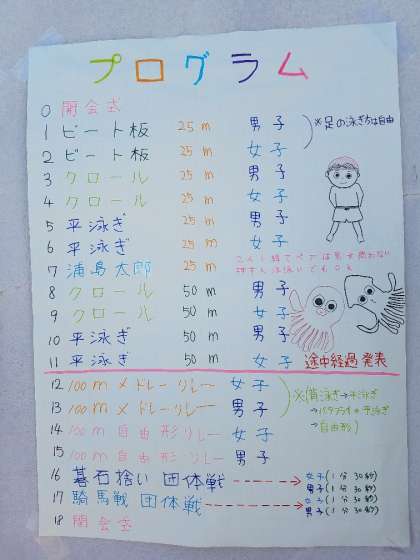 プログラム
0 開会式
1 ビート板 25m 男子 ※足の泳ぎ方は自由
2 ビート板 25m 女子
3 クロール 25m 男子
4 クロール 25m 女子
5 平泳ぎ 25m 男子
6 平泳ぎ 25m 女子
7 浦島太郎 25m 2人1組でペアは男女問わない
押す人は泳いでもOK
8 クロール 50m 男子
9 クロール 50m 女子
10 平泳ぎ 50m 男子
11 平泳ぎ 50m 女子 途中経過発表
12 100mメドレーリレー 女子 ※(背泳ぎ→平泳ぎ
13 100mメドレーリレー 男子 →バタフライor平泳ぎ
→自由形)
14 100m自由形リレー 女子
15 100m自由形リレー 男子
16 碁石拾い 団体戦 女子(1分30秒)
男子(1分30秒)
17 騎馬戦 団体戦 女子(1分30秒)
男子(1分30秒)
18 閉会式